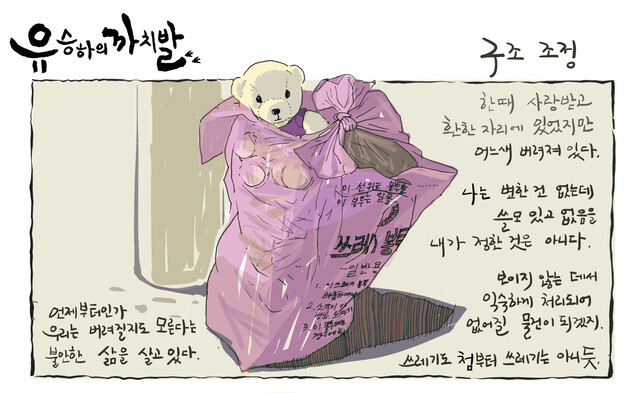 유승하의 까치발
구조 조정
한때 사랑받고
환한 자리에 있었지만
어느새 버려져 있다.
나는 변한 건 없는데
쓸모 있고 없음을
내가 정한 것은 아니다.
보이지 않는 데서
익숙하게 처리되어
없어질 물건이 되겠지.
쓰레기도 첨부터 쓰레기는 아니듯.
언제부터인가
우리는 버려질지도 모른다는
불안한 삶을 살고 있다.
쓰레기 봉투
일반용